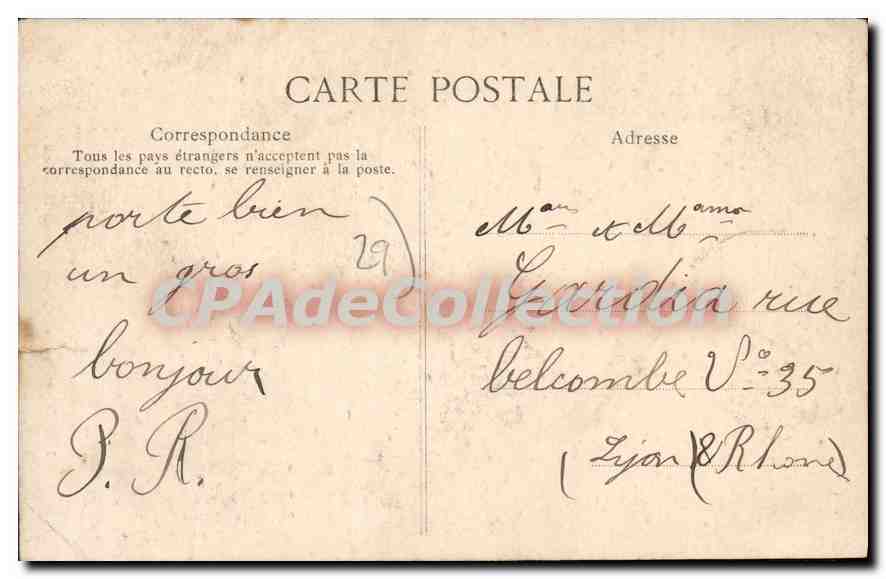 CARTE POSTALE
Correspondance
Tous les pays étrangers n'acceptent pas la
correspondance au recto, se renseigner à la poste.
porte bien
un gros
bonjour
P. R.
29
Adresse
M & M
Gardia rue
belcombe N° 35
(Lyon (Rhone)
CPAdeCollection